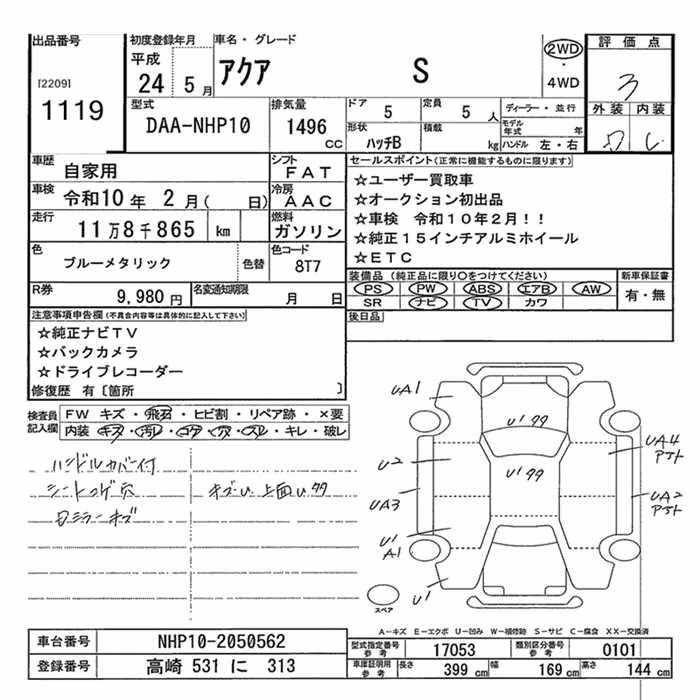 出品番号
[2209]
1119
初度登録年月
平成
24 5月
車名・グレード
アクア S
2WD
・
4WD
評価点
3
外装 内装
型式
DAA-NHP10
排気量
1496 CC
ドア 5
定員 5人
ディーラー・並行
形状 ハッチB
積載 kg
モデル年式 年
ハンドル 左・右
車歴 自家用
シフト FAT
車検 令和10年 2月( 日)
冷房 AAC
走行 11万8千865 km
燃料 ガソリン
色 ブルーメタリック 色替
色コード 8T7
R券 9,980円
名変通知期限 月 日
セールスポイント(正常に機能するものに限ります)
☆ユーザー買取車
☆オークション初出品
☆車検 令和10年2月!!
☆純正15インチアルミホイール
☆ETC
装備品 (純正品に限り○をつけてください)
PS PW ABS エアB AW
SR ナビ TV カワ
新車保証書
有・無
後日品
注意事項申告欄(不具合内容等は具体的に記入して下さい)
☆純正ナビTV
☆バックカメラ
☆ドライブレコーダー
修復歴 有〔箇所 〕
検査員記入欄
FW キズ・飛石・ヒビ割・リペア跡・×要
内装 キズ・汚レ・コゲ・穴・スレ・キレ・破レ
ハンドルカバー付
シートコゲ穴
キズU 上面U99
UA1
U'99
U2
U'99
UA4
アト
UA3
UA2
アト
U'
A1
U'
スペア
A-キズ E-エクボ U-凹み W-補修跡 S-サビ C-腐食 XX-交換済
車台番号 NHP10-2050562
登録番号 高崎 531 に 313
型式指定番号 参考 17053
類別区分番号 参考 0101
車庫証明用 参考 長さ 399 cm 幅 169 cm 高さ 144 cm